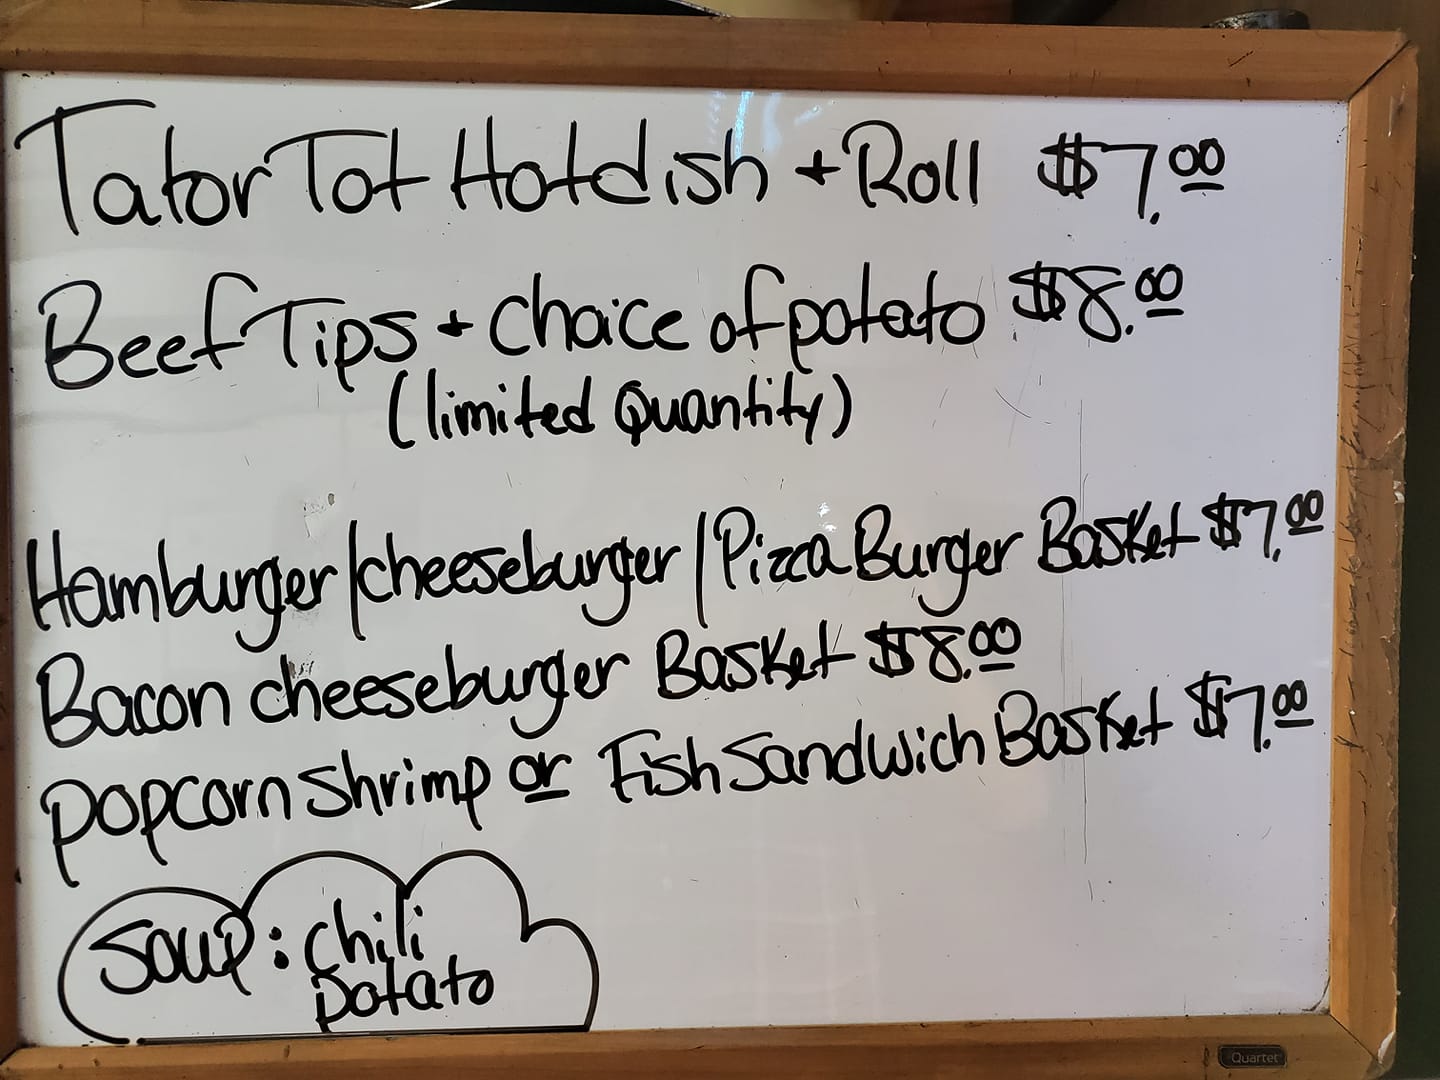 Tator Tot Hotdish + Roll $7.00
Beef Tips + Choice of potato $8.00
(limited Quantity)
Hamburger/cheeseburger/Pizza Burger Basket $7.00
Bacon cheeseburger Basket $8.00
Popcorn Shrimp or Fish Sandwich Basket $7.00
Soup: chili
potato
Quartet